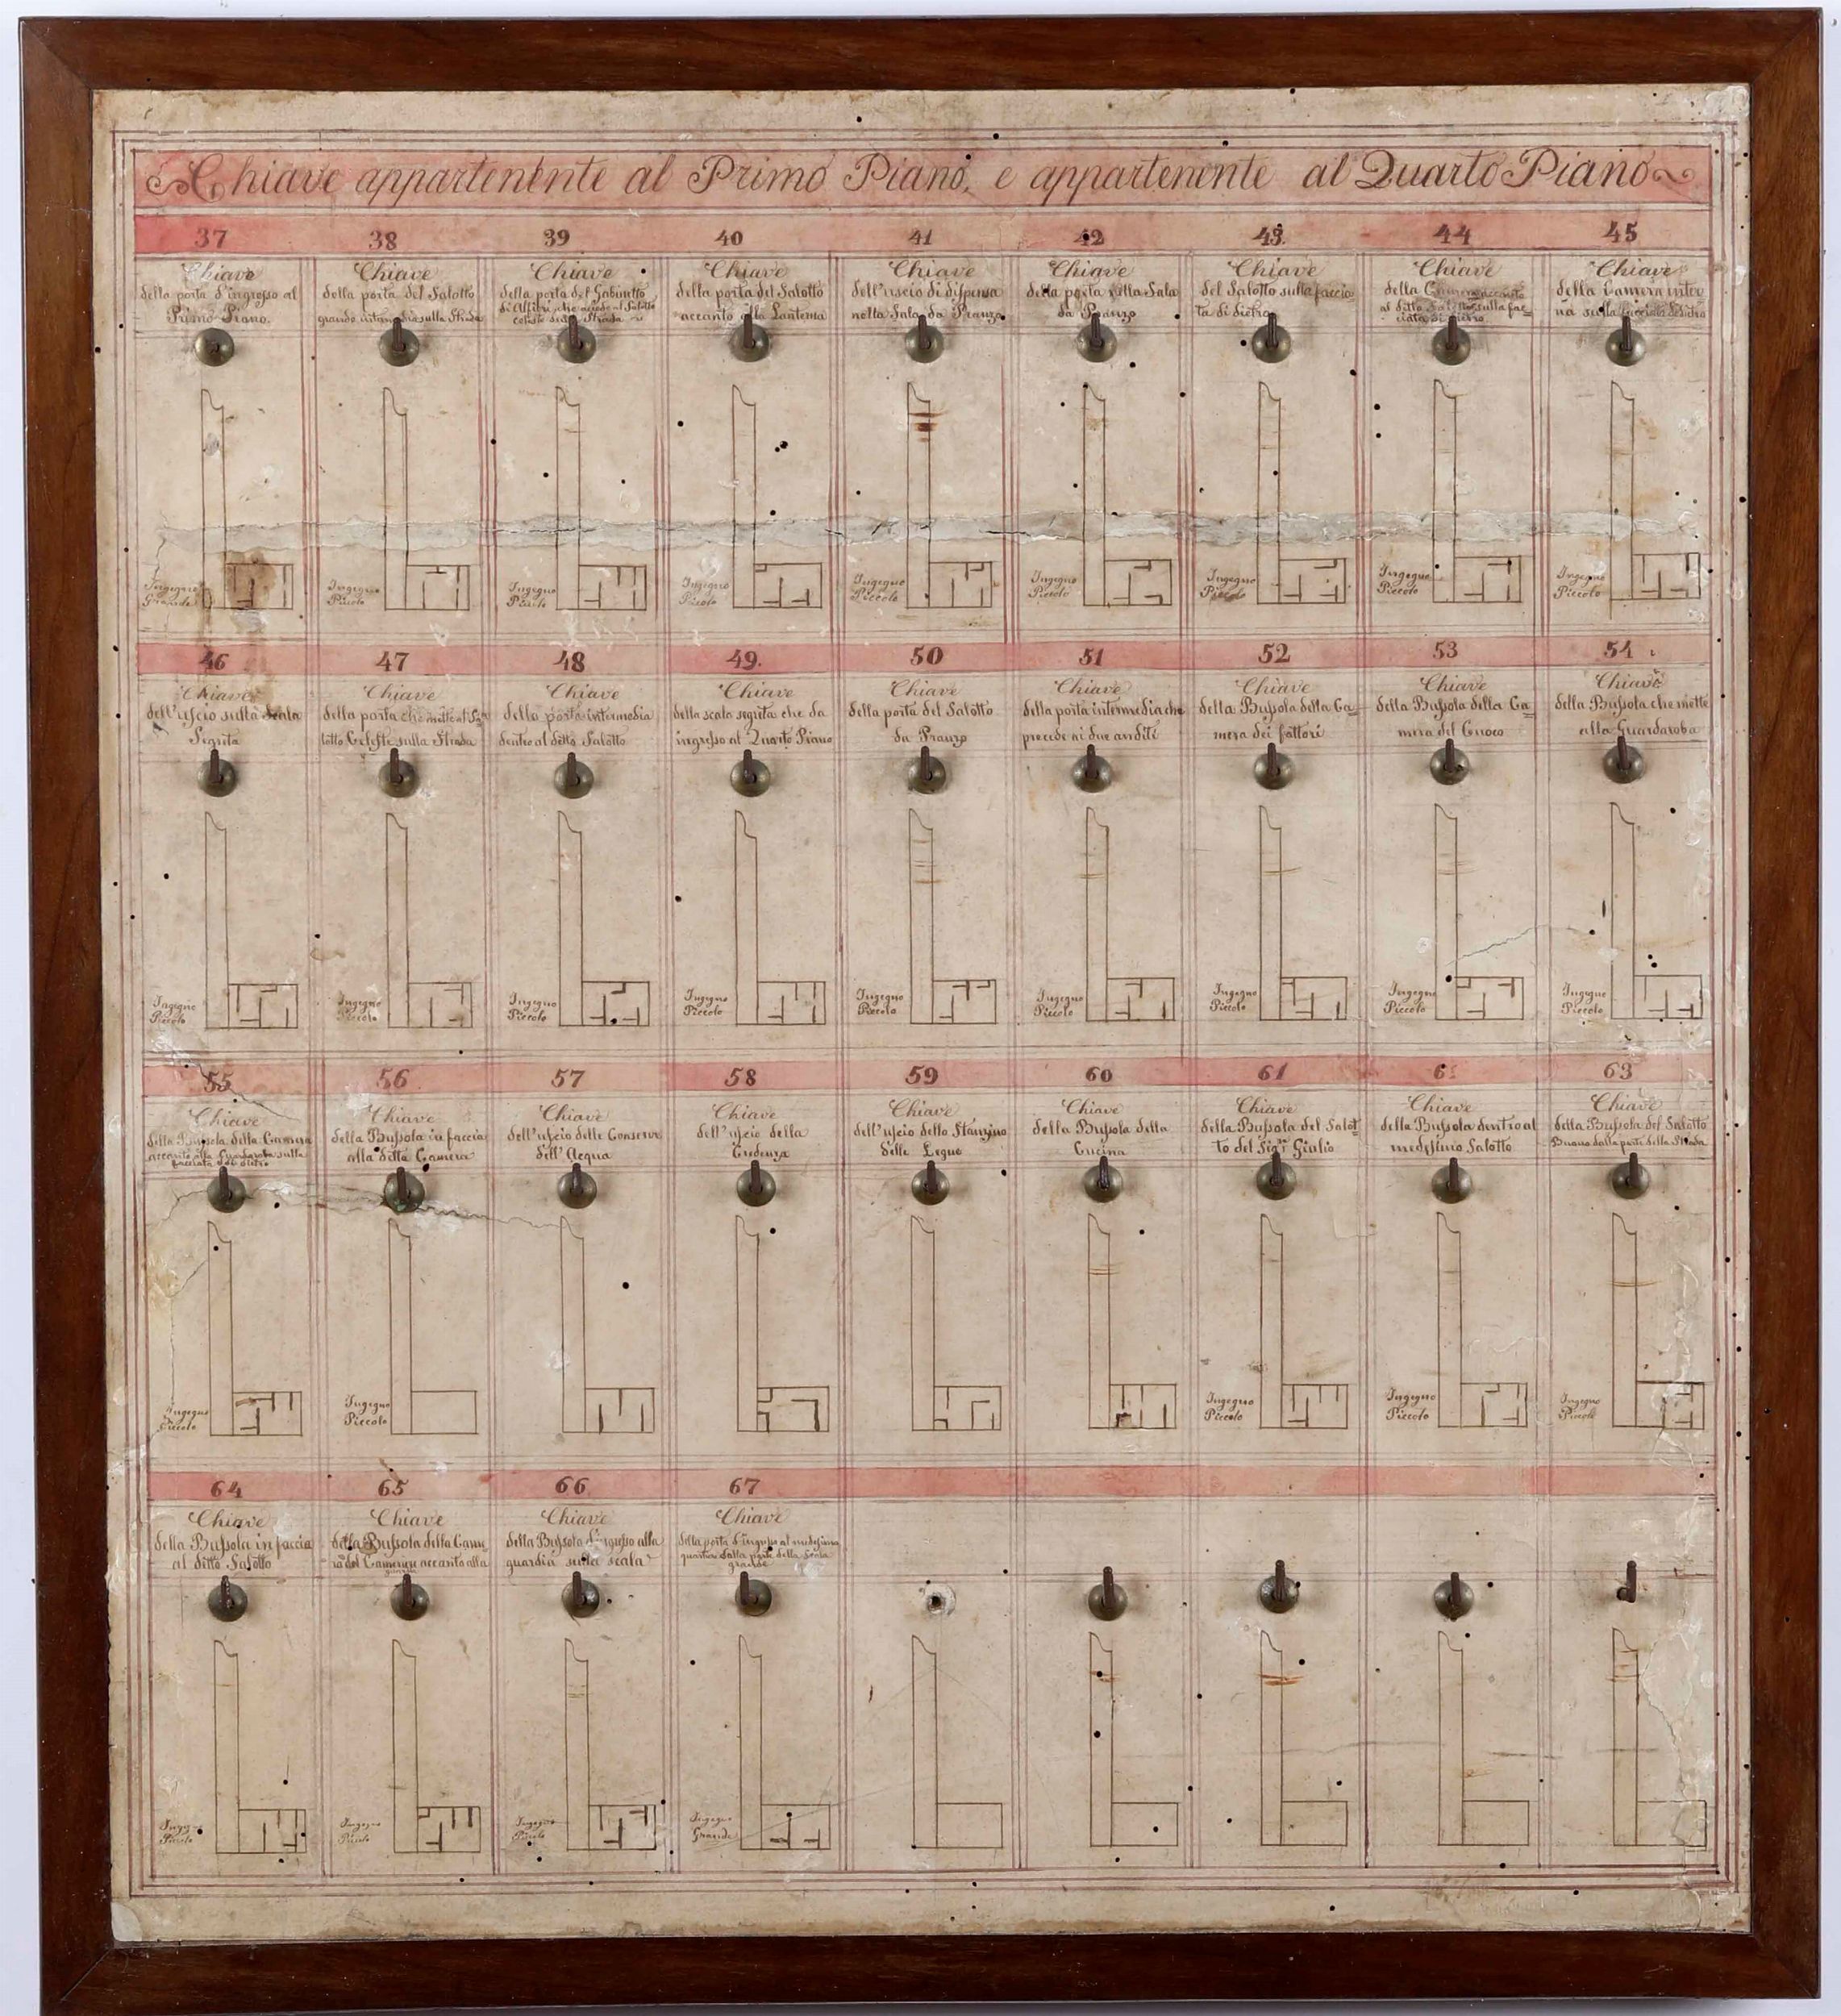 Chiave appartenente al Primo Piano, e appartenente al Quarto Piano
37 38 39 40 41 42 43. 44 45
Chiave
della porta d'ingresso al
Primo Piano.
Ingegno
Grande
Chiave
della porta del Salotto
grande sulla Strada
Ingegno
Piccolo
Chiave
della porta del Gabinetto
che accede al Salotto
celeste Strada
Ingegno
Piccolo
Chiave
della porta del Salotto
accanto alla Lanterna
Ingegno
Piccolo
Chiave
dell'uscio di dispensa
nella Sala da Pranzo
Ingegno
Piccolo
Chiave
della porta della Sala
da Pranzo
Ingegno
Piccolo
Chiave
del Salotto sulla faccia
ta di dietro
Ingegno
Piccolo
Chiave
della Camera accanto
al ditto Salotto sulla fac=
ciata di dietro
Ingegno
Piccolo
Chiave
della Camera inter
na sulla facciata di dietro
Ingegno
Piccolo
46 47 48 49. 50 51 52 53 54
Chiave
dell'uscio sulla Scala
Segreta
Ingegno
Piccolo
Chiave
della porta che mette al Sa=
lotto Celeste sulla Strada
Ingegno
Piccolo
Chiave
della porta intermedia
dentro al ditto Salotto
Ingegno
Piccolo
Chiave
della scala segreta che da
ingresso al Quarto Piano
Ingegno
Piccolo
Chiave
della porta del Salotto
da Pranzo
Ingegno
Piccolo
Chiave
della porta intermedia che
precede ai due anditi
Ingegno
Piccolo
Chiave
della Bussola della Ca=
mera dei fattori
Ingegno
Piccolo
Chiave
della Bussola della Ca=
mera del Cuoco
Ingegno
Piccolo
Chiave
della Bussola che mette
alla Guardaroba
Ingegno
Piccolo
55 56 57 58 59 60 61 6 63
Chiave
della Bussola della Camera
accanto alla Guardaroba sulla
facciata di dietro
Ingegno
Piccolo
Chiave
della Bussola in faccia
alla ditta Camera
Ingegno
Piccolo
Chiave
dell'uscio delle Conserve
dell'Acqua
Chiave
dell'uscio della
Credenza
Chiave
dell'uscio dello Stanzino
delle Legne
Chiave
della Bussola della
Cucina
Chiave
della Bussola del Salot
to del Sigr Giulio
Ingegno
Piccolo
Chiave
della Bussola dentro al
medesimo Salotto
Ingegno
Piccolo
Chiave
della Bussola del Salotto
Buono dalla parte della Strada
Ingegno
Piccolo
64 65 66 67
Chiave
della Bussola in faccia
al ditto Salotto
Ingegno
Piccolo
Chiave
della Bussola della Came
ra del Camerieri accanto alla
guardia
Ingegno
Piccolo
Chiave
della Bussola d'ingresso alla
guardia sulla scala
Ingegno
Piccolo
Chiave
della porta d'ingresso al medesimo
quartier dalla parte della Scala
grande
Ingegno
Grande